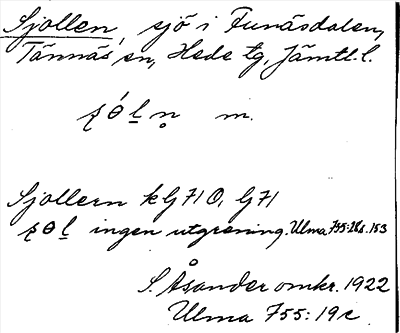 Sjollen, sjö i Funäsdalen,
Tännäs sn, Hede tg, Jämtl. l.
m.
Sjollern k G 71 O, G 71
ingen utgrening. Ulma 755:18c s. 153
S. Åsander omkr. 1922
Ulma 755:19c